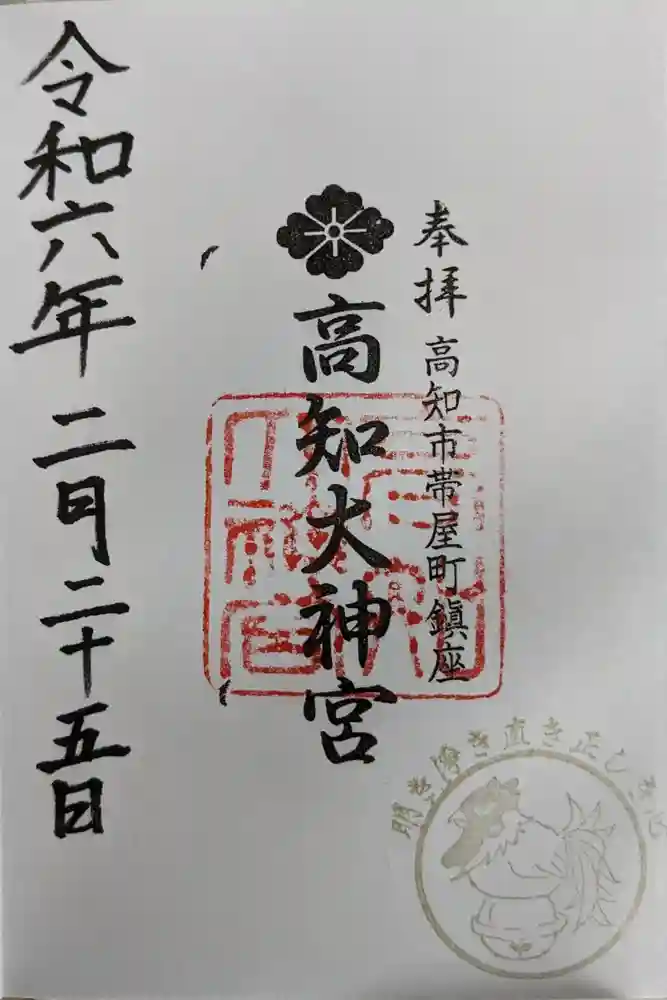 奉拝
高知市帯屋町鎮座
高知大神宮
令和六年二月二十五日
明き清き直き正しき心